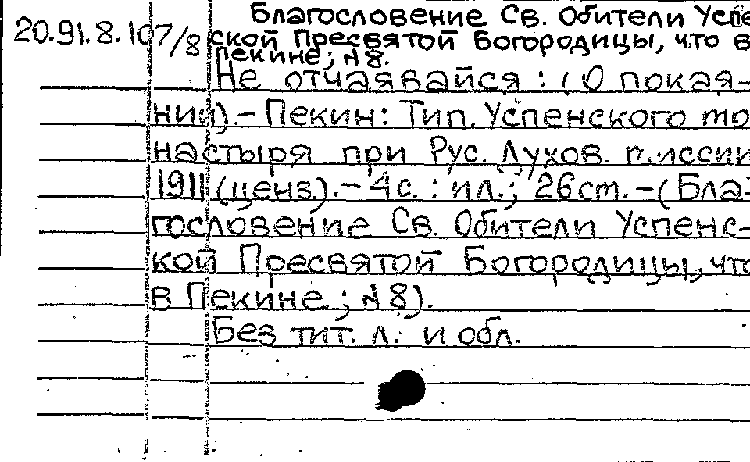 Благословение Св. Обители Успен
20.91.8.107/8 ской Пресвятой Богородицы, что в
Пекине; №8.
Не отчаявайся: (О покая-
нии).- Пекин: Тип. Успенского мо
настыря при Рус. Духов. миссии
1911 (ценз.).- 4с.: ил.; 26см.-(Бла-
гословение Св. Обители Успенс-
кой Пресвятой Богородицы, что
в Пекине; №8).
Без тит. л. и обл.